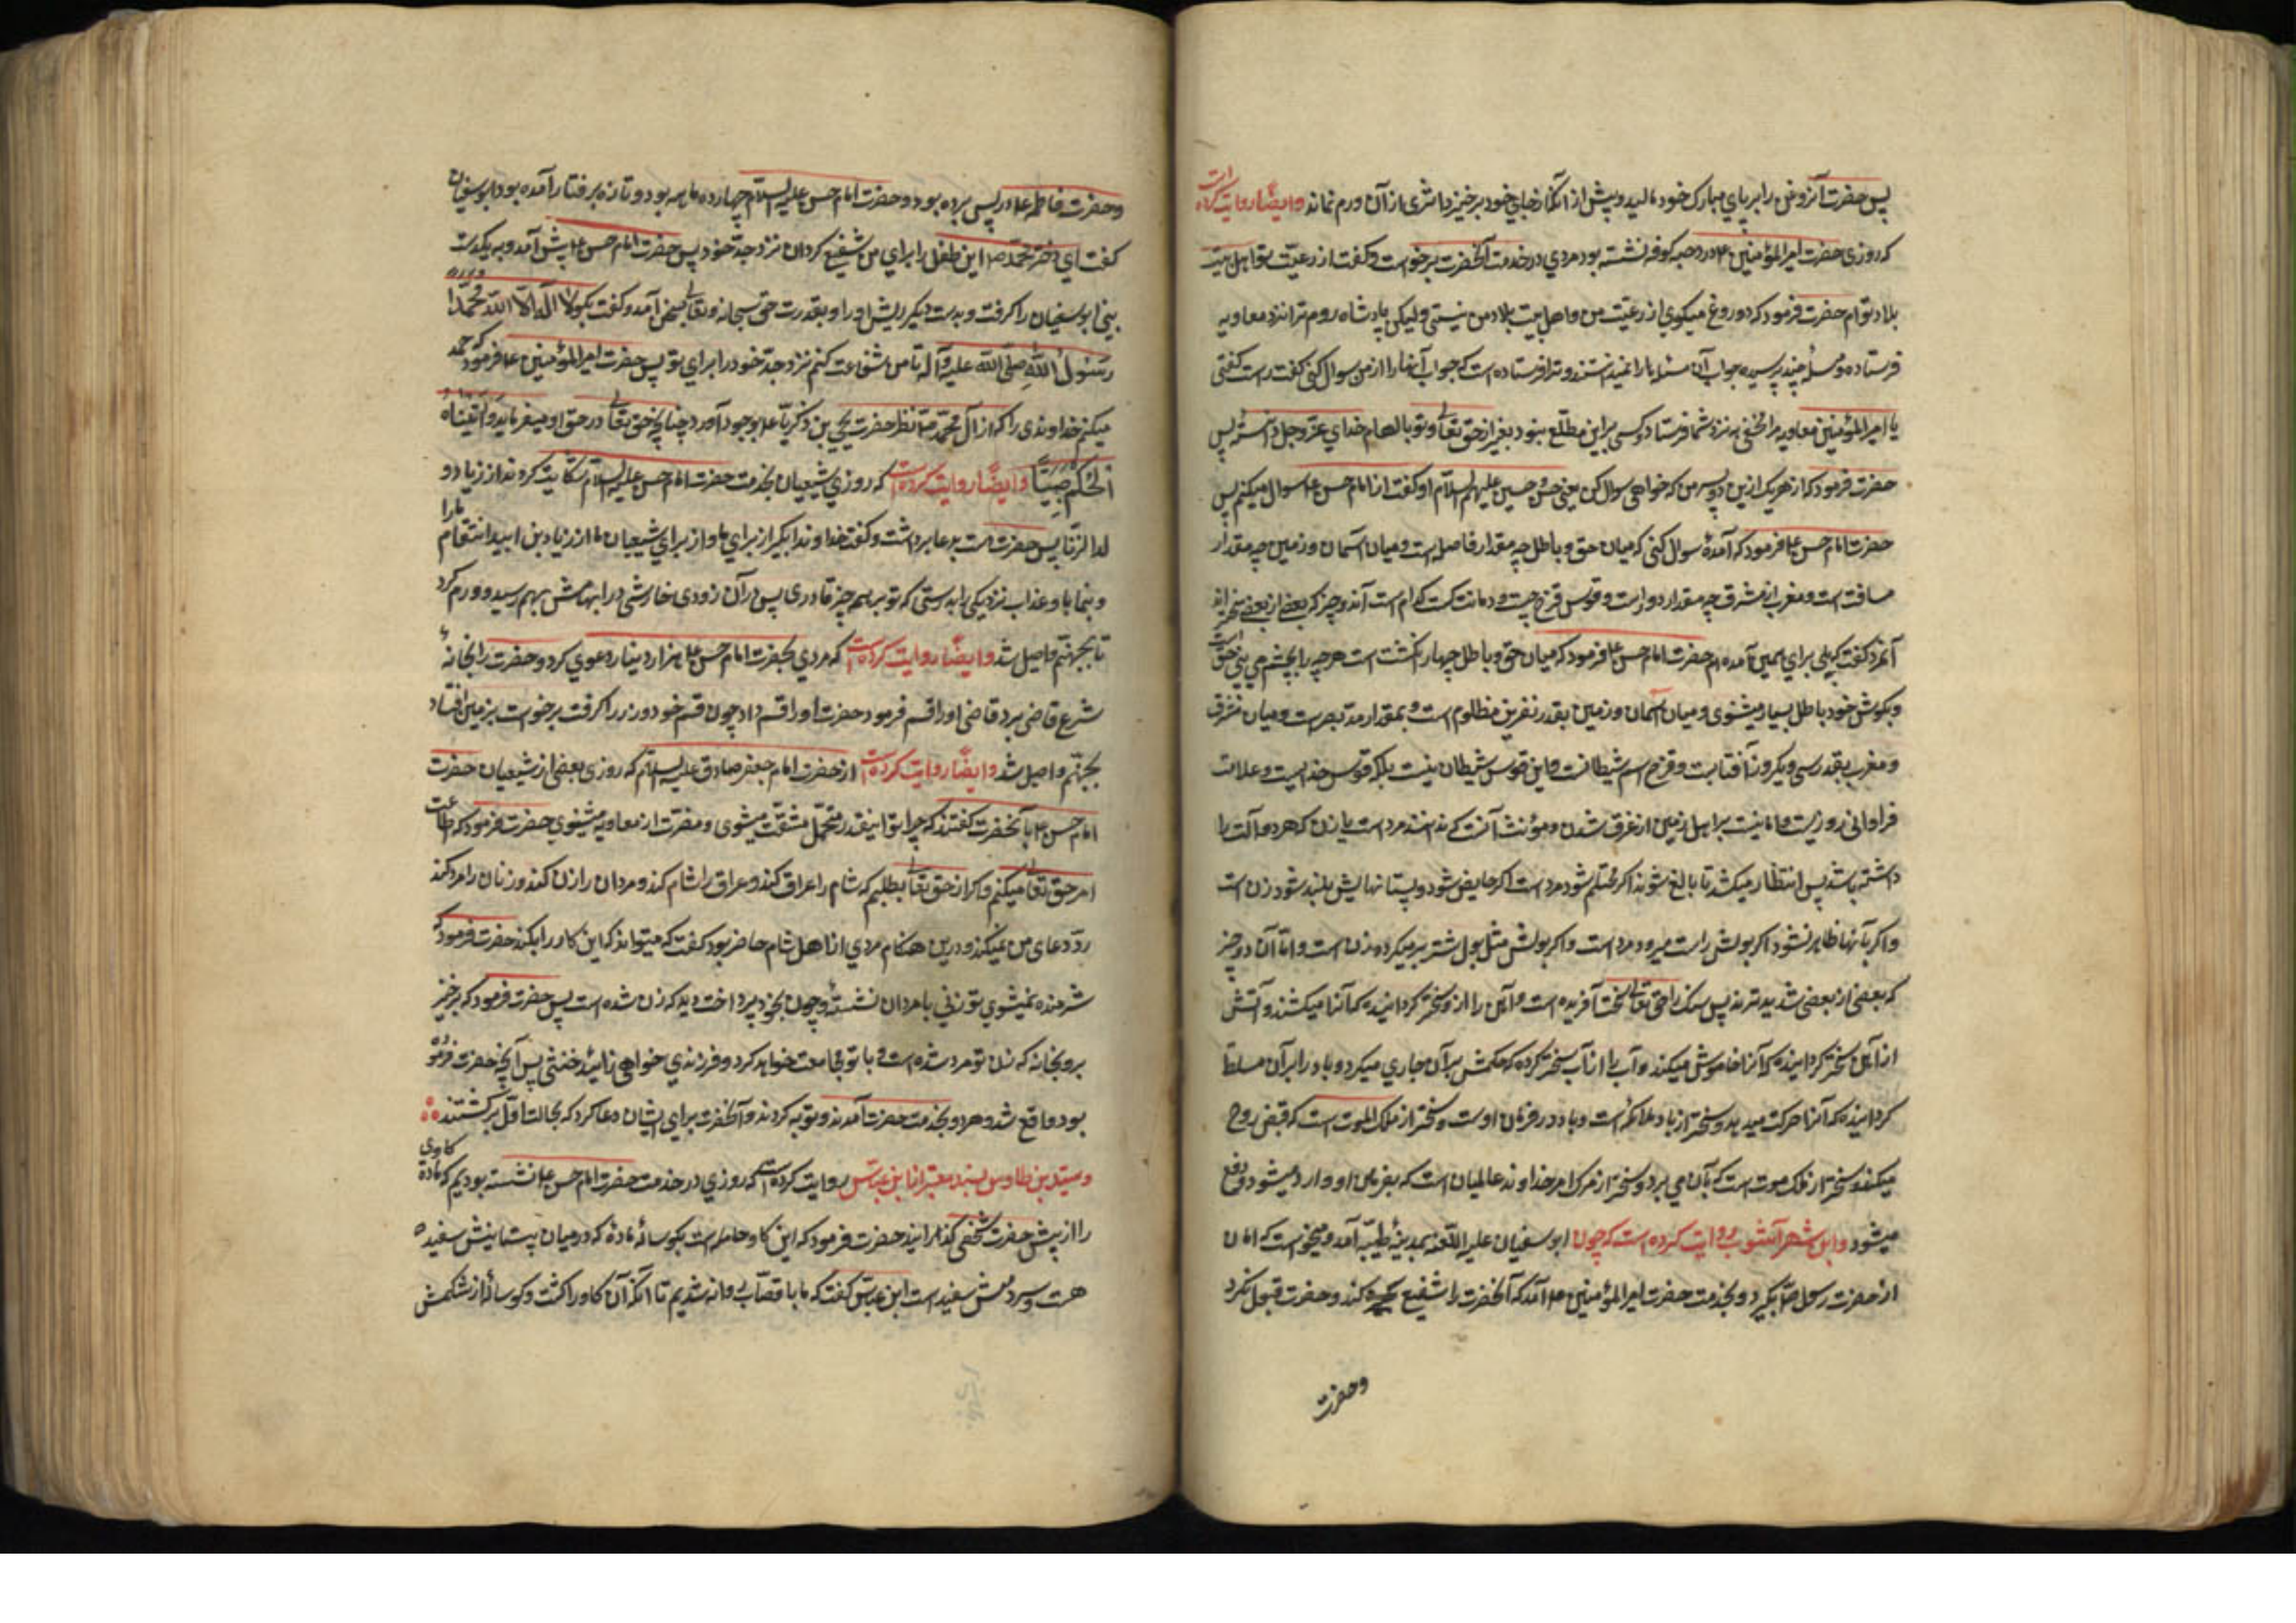 پس حضرت آنروغن را بر پای مبارک خود مالید و پیش از آنکه از جای خود برخیزد اثری از آن ورم نماند وایضًا روایت کرده است
که روزی حضرت امیرالمؤمنین ع در رحبه کوفه نشسته بود مردی در خدمت آنحضرت برخواست و گفت از رعیت تو و اهل بیت
بلاد توام حضرت فرمود که دروغ میگوی از رعیت من و اهل بیت بلاد من نیستی ولیکن پادشاه روم ترا نزد معاویه
فرستاده و مسئله چند پرسیده جواب آن مسئله را نمیدانستند و ترا فرستاده است که جواب آنها را از من سوال کنی گفت راست گفتی
یا امیرالمؤمنین معاویه مرا مخفی به نزد شما فرستاد و کسی براین مطلع نبود بغیر از حق تعالی و تو بالهام خدای عزوجل دانسته پس
حضرت فرمود که از هر یک ازین دو پسر من که خواهی سوال کن یعنی حسن و حسین علیهم السلام او گفت از امام حسن ع سوال میکنم پس
حضرت امام حسن ع فرمود که آمدهٔ سوال کنی که میان حق و باطل چه مقدار فاصله است و میان آسمان و زمین چه مقدار
مسافت است و مغرب از مشرق چه مقدار دور است و قوس قزح چیست و ده چیز که بعضی از بعضی سختراند
آنمرد گفت که بلی برای همین آمده‌ام حضرت امام حسن ع فرمود که میان حق و باطل چهار انگشت است هرچه را بچشم می بینی حق است
و بگوش خود باطل بسیار میشنوی و میان آسمان و زمین بقدر نفرین مظلوم است و بمقدار مد بصر است و میان مشرق
و مغرب بقدر سیر یکروز آفتابست و قزح اسم شیطانست و این قوس شیطان نیست بلکه قوس خداییست و علامت
فراوانی روزیست و امانیست برای اهل زمین از غرق شدن و مؤنث آنست که ندانند مرد است یا زن که هر دو آلت را
داشته باشد پس انتظار میکشند تا بالغ شود اگر محتلم شود مرد است اگر حایض شود و پستانهایش بلند شود زن است
و اگر باینها ظاهر نشود اگر بولش راست میرود مرد است و اگر بولش مثل بول شتر برمیگردد زن است و اما آن ده چیز
که بعضی از بعضی شدیدترند پس سنگ را حق تعالی سخت آفریده است و آهن را از او سختر گردانیده که آنرا میشکند و آتش
از آهن سختر گردانیده که آنرا خاموش میکند و آب را از آب سختر کرده که حکمش برآن جاری میگردد و باد را برآن مسلط
گردانیده که آنرا حرکت میدهد و سختر از باد ملائکه است و باد در فرمان اوست و سختر از ملک الموت است که قبض روح
میکند و سختر از ملک موت است که بآن می میرد و سختر از مرگ امر خداوند عالمیان است که بفرمان او وارد میشود و دفع
میشود وابن شهرآشوب روایت کرده است که چون ابوسفیان علیه اللعنه بمدینهٔ طیبه آمد و میخواست که امان
از حضرت رسول ص بگیرد و بخدمت حضرت امیرالمؤمنین ع آمد که آنحضرت را شفیع کند و حضرت قبول نکرد
وحضرت
وحضرت فاطمه ع در پس پرده بود و حضرت امام حسن علیه السلام چهارده ماهه بود و تازه برفتار آمده بود ابوسفیان
گفت ای دختر محمد ص این طفل را برای من شفیع گردان نزد جد خود پس حضرت امام حسن ع پیش آمد و به یکدست
بینی ابوسفیان را گرفت و بدست دیگر ریش او را و بقدرت حق سبحانه و تعالی بسخن آمد و گفت بگو لا اله الا الله محمد
رسول الله صلی الله علیه و آله تا من شفاعت کنم نزد جد خود را برای تو پس حضرت امیرالمؤمنین ع فرمود که حمد
میکنم خداوندی را که از آل محمد ص نظیر حضرت یحیی بن زکریا ع بوجود آورد چنانچه حق تعالی در حق او میفرماید وآتیناه
الحکم صبیًا وایضًا روایت کرده است که روزی شیعیان بخدمت حضرت امام حسن علیه السلام شکایت کردند از زیاد و
لدالزنا پس حضرت دست بدعا برداشت و گفت خداوندا بگیر از برای ما و از برای شیعیان ما از زیاد بن ابیه انتقام مارا
و بنما باو عذاب نزدیکی را بدرستی که تو بر همه چیز قادری پس در آن زودی خارشی در ابهامش بهم رسید و ورم کرد
تا بجهنم واصل شد وایضًا روایت کرده است که مردی بحضرت امام حسن ع هزار دینار دعوی کرد و حضرت را بخانهٔ
شرع قاضی برد قاضی او را قسم فرمود حضرت او را قسم داد چون قسم خورد و زر را گرفت برخواست بزمین افتاد
بجهنم واصل شد وایضًا روایت کرده است از حضرت امام جعفر صادق علیه السلام که روزی بعضی از شیعیان حضرت
امام حسن ع بآنحضرت گفتند که چرا تو اینقدر متحمل مشقت میشوی و مضرت از معاویه میشنوی حضرت فرمود که اطاعت
امر حق تعالی میکنم و اگر از حق تعالی بطلبم که شام را عراق کند و عراق را شام کند و مردان را زن کند و زنان را مرد کند
رد دعای من نمیکند و درین هنگام مردی از اهل شام حاضر بود گفت که میتواند که این کار را بکند حضرت فرمود که
شرمنده نمیشوی تو زنی با مردان نشستهٔ و چون بخود پرداخت دید که زن شده است پس حضرت فرمود که برخیز
برو بخانه که زن تو مرد شده است و با تو مجامعت خواهد کرد و فرزندی خواهی زائید خنثی پس آنچه حضرت فرموده
بود واقع شد و هر دو بخدمت حضرت آمدند و توبه کردند و آنحضرت برای ایشان دعا کرد که بحالت اول برگشتند
وسید بن طاوس بسند معتبر از ابن عباس روایت کرده است که روزی در خدمت حضرت امام حسن ع نشسته بودیم که گاوی ماده
را از پیش حضرت شخصی گذرانید حضرت فرمود که این گاو حامله است بگوسالهٔ ماده که در میان پستانیش سفید
هست و سر دمش سفید است ابن عباس گفت که ما با قصاب روانه شدیم تا آنکه آن گاو را کشت و گوساله از شکمش